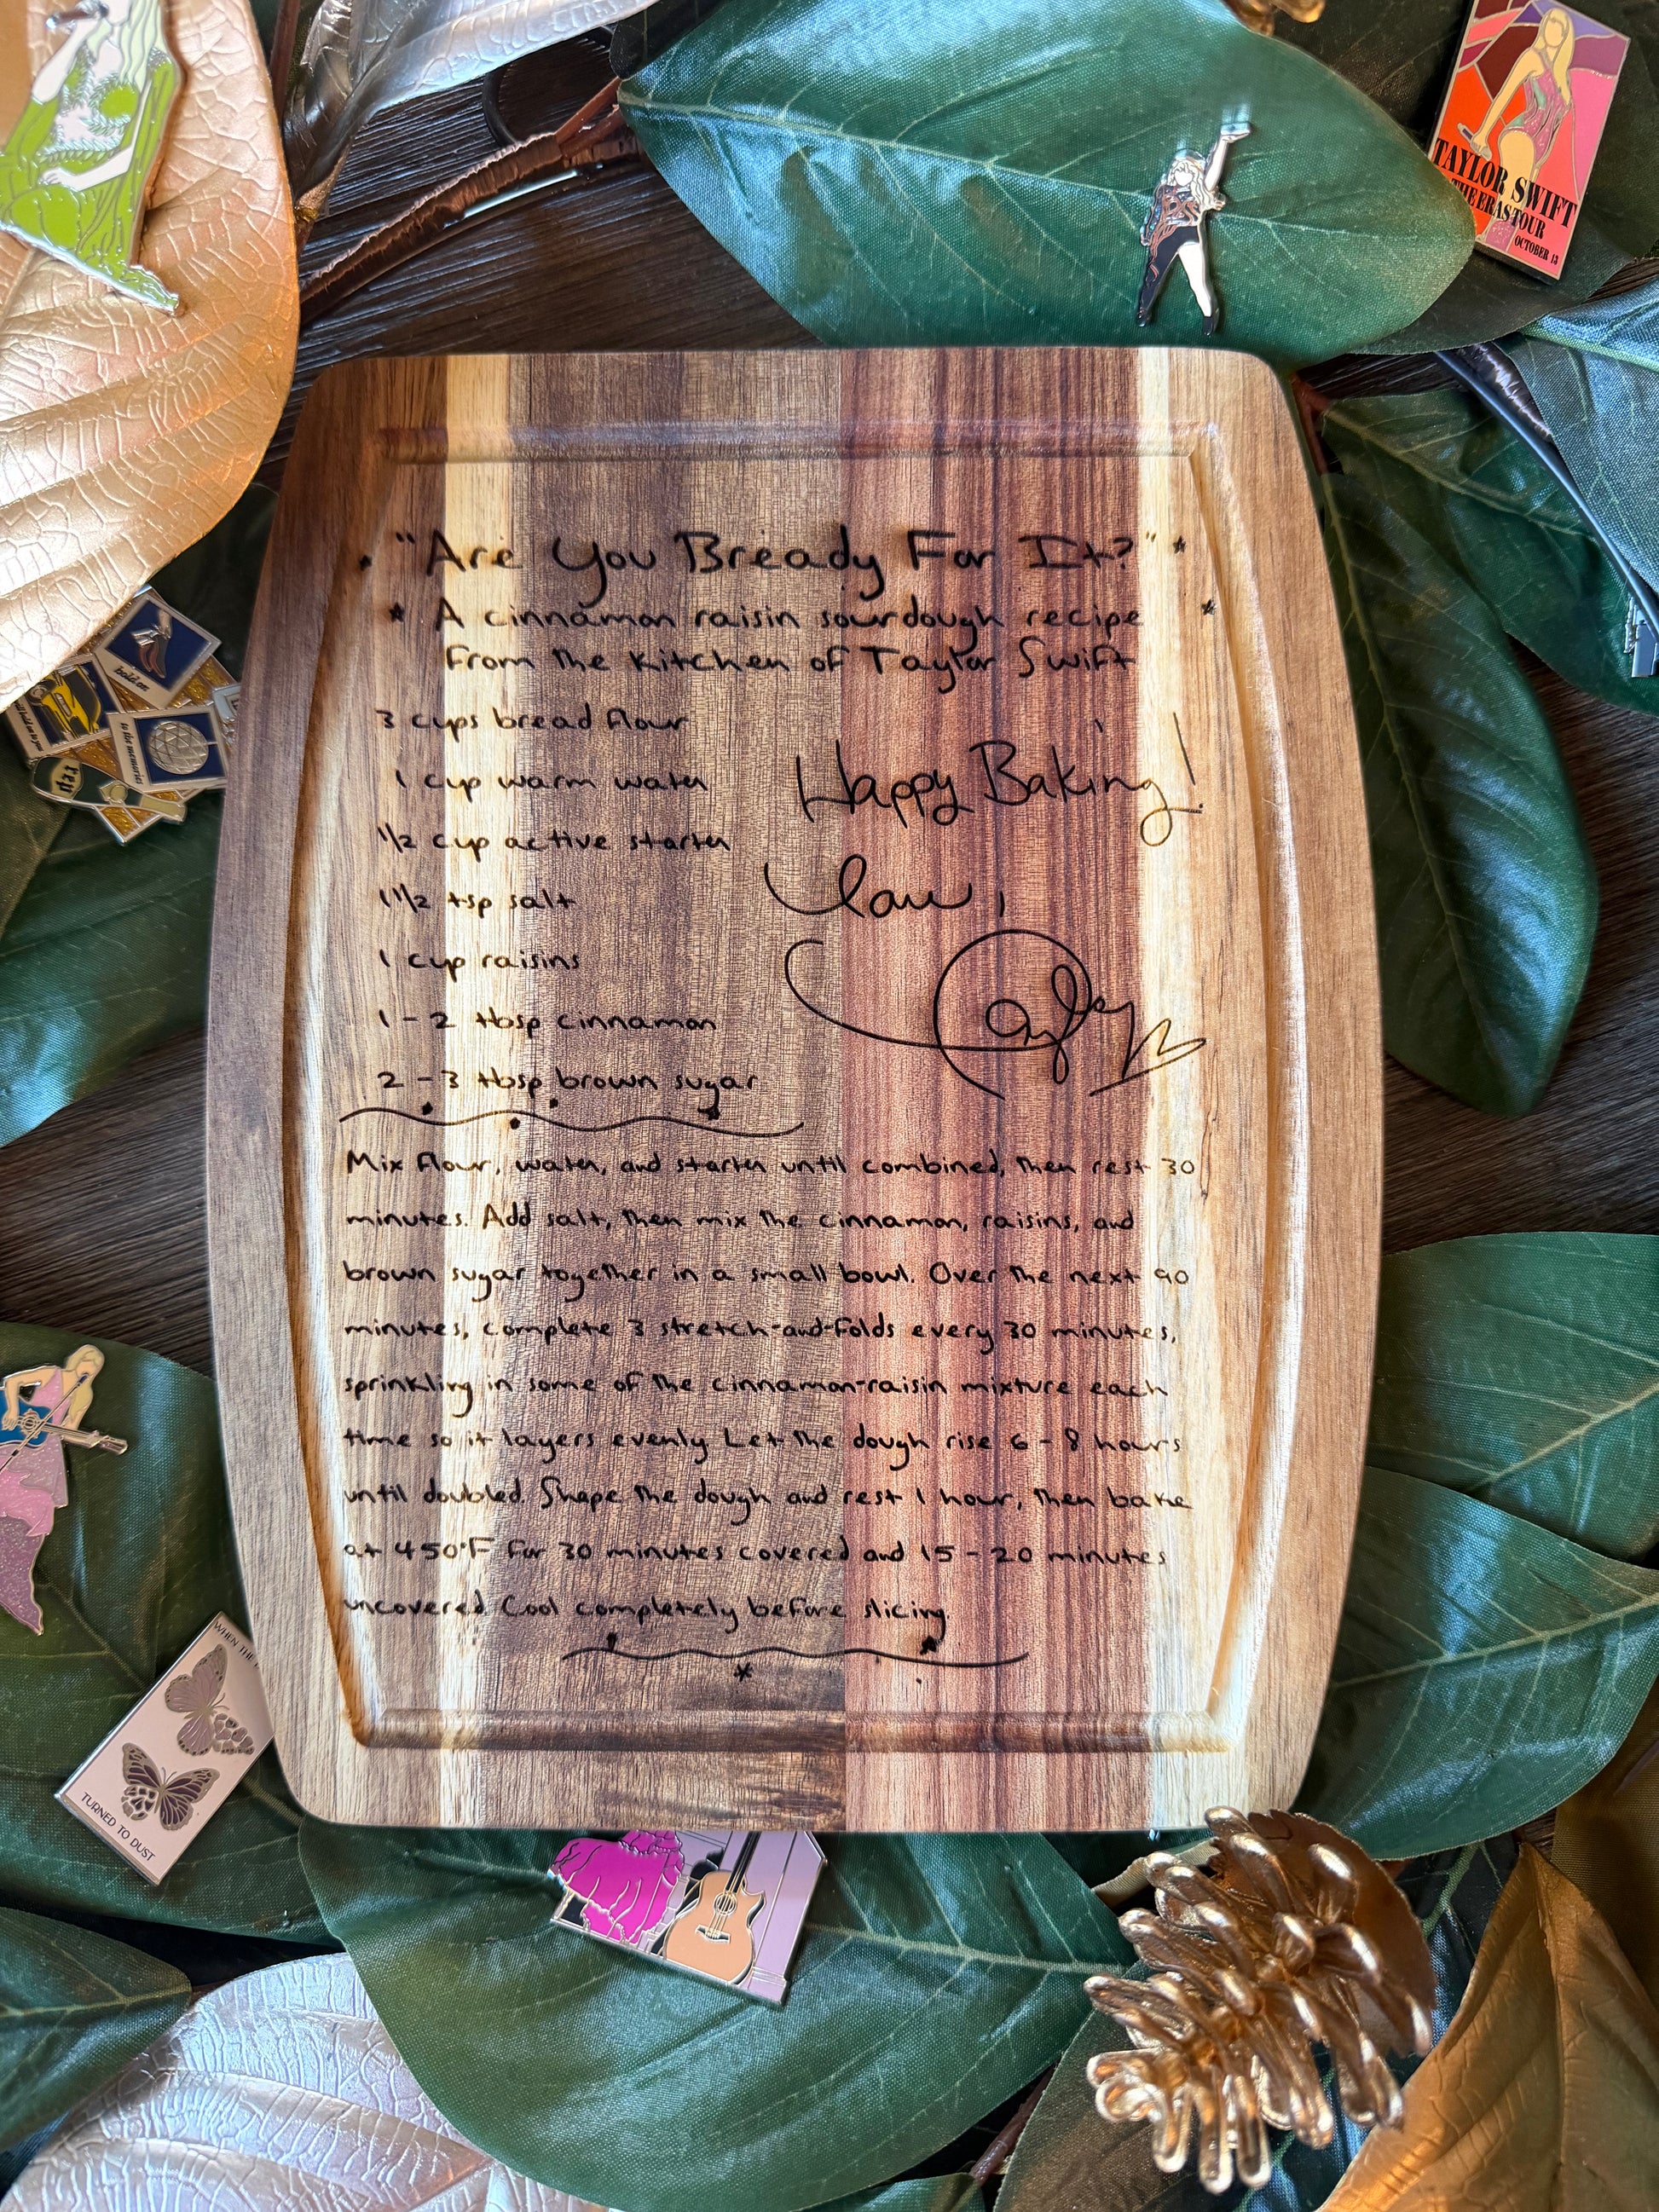 TAYLOR SWIFT
THE ERAS TOUR
OCTOBER 13
"Are You Bready For It?"
A cinnamon raisin sourdough recipe
from the kitchen of Taylor Swift
3 cups bread flour
1 cup warm water
1/2 cup active starter
1 1/2 tsp salt
1 cup raisins
1-2 tbsp cinnamon
2-3 tbsp brown sugar
Happy Baking!
Love,
Taylor
Mix flour, water, and starter until combined, then rest 30
minutes. Add salt, then mix the cinnamon, raisins, and
brown sugar together in a small bowl. Over the next 90
minutes, complete 3 stretch-and-folds every 30 minutes,
sprinkling in some of the cinnamon-raisin mixture each
time so it layers evenly. Let the dough rise 6-8 hours
until doubled. Shape the dough and rest 1 hour, then bake
at 450°F for 30 minutes covered and 15-20 minutes
uncovered. Cool completely before slicing.
hold on
to the memories
rep
WHEN THE
TURNED TO DUST